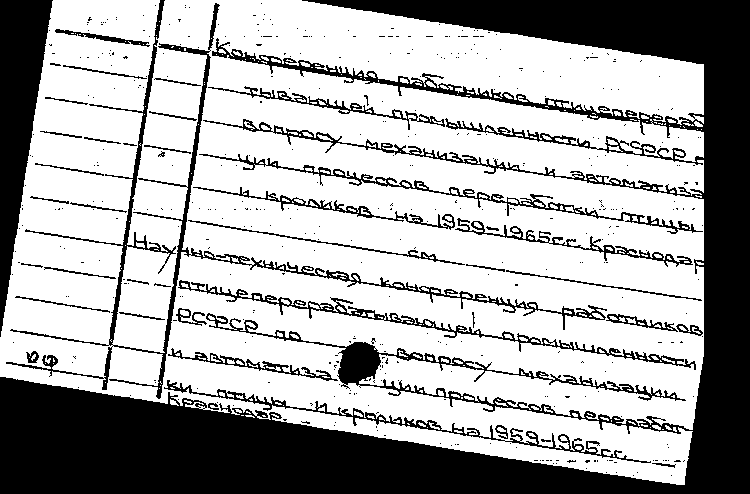 Конференция работников птицеперераб
тывающей промышленности РСФСР п
вопросу механизации и автоматиза
ции процессов переработки птицы
и кроликов на 1959-1965г.г. Краснодар
см
Научно-техническая конференция работников
птицеперерабатывающей промышленности
РСФСР по вопросу механизации
и автоматизации процессов переработ
ки птицы и кроликов на 1959-1965г.г.
Краснодар.